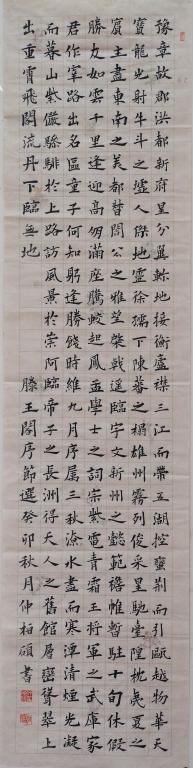 豫章故郡洪都新府星分翼軫地接衡廬襟三江而帶五湖控蠻荊而引甌越物華天
寶龍光射牛斗之墟人傑地靈徐孺下陳蕃之榻雄州霧列俊采星馳臺隍枕夷夏之
賓主盡東南之美都督閻公之雅望棨戟遙臨宇文新州之懿範襜帷暫駐十旬休假
勝友如雲千里逢迎高朋滿座騰蛟起鳳孟學士之詞宗紫電青霜王將軍之武庫家
君作宰路出名區童子何知躬逢勝餞時維九月序屬三秋潦水盡而寒潭清煙光凝
而暮山紫儼驂騑於上路訪風景於崇阿臨帝子之長洲得天人之舊館層巒聳翠上
出重霄飛閣流丹下臨無地
滕王閣序節選癸卯秋月仲柏碩書